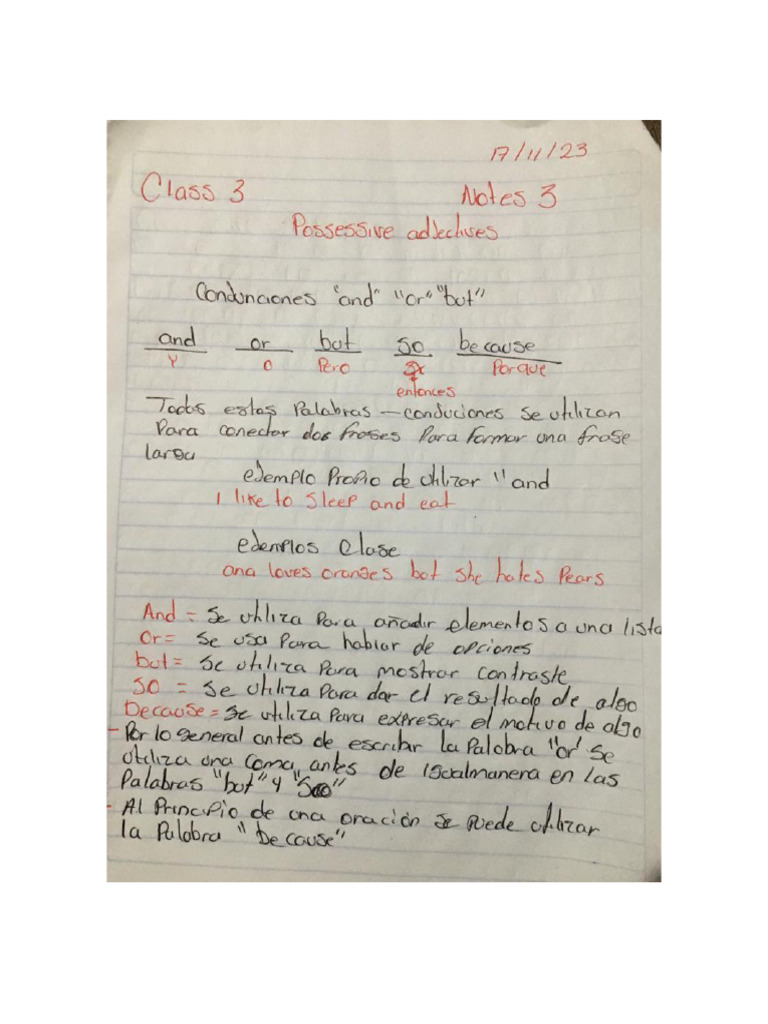 17/11/23
Class 3 Notes 3
Possessive adjectives
Condunciones "and" "or" "but"
and or but so because
Y O Pero Porque
entonces
Todos estas Palabras - conduciones se utilizan
Para conector dos frases Para formar una frase
larga
ejemplo Propio de utilizar "and
I like to sleep and eat
ejemplos Clase
ana loves oranges but she hates Pears
And = Se utiliza Para añadir elementos a una lista
Or = Se usa Para hablar de opciones
but = Se utiliza Para mostrar contraste
SO = Se utiliza Para dar el resultado de algo
Because = Se utiliza Para expresar el motivo de algo
- Por lo general antes de escribar la Palabra "or' Se
utiliza una coma, antes de igualmanera en las
Palabras "but" y "So"
- Al Principio de una oración se puede utilizar
la Palabra "Because"